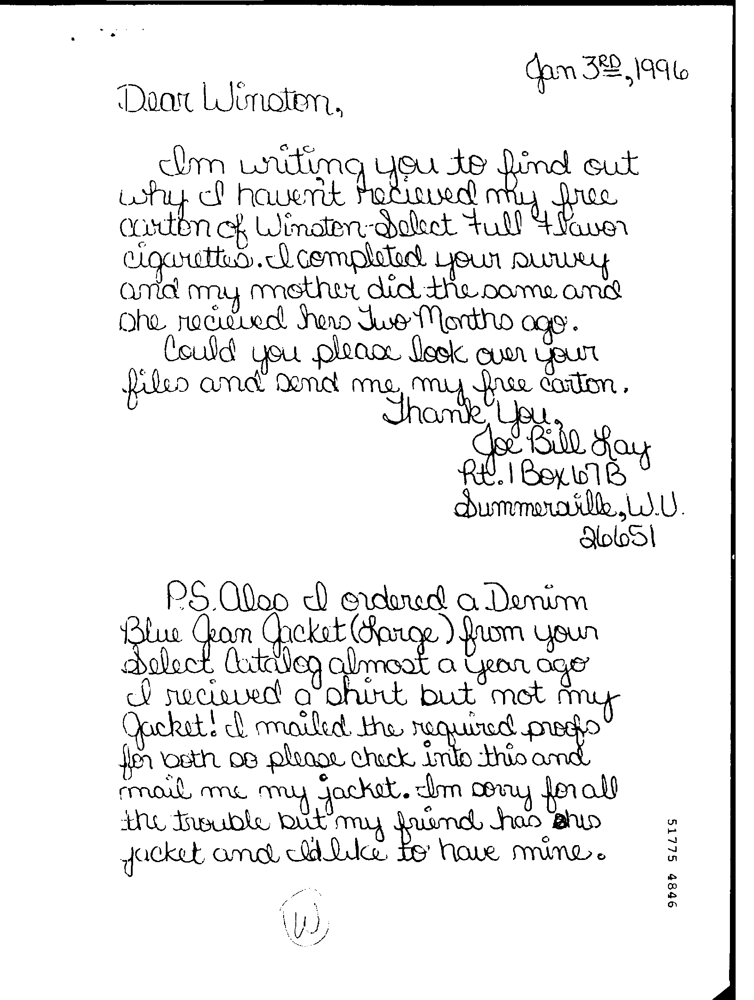 Jan 3RD, 1996
Dear Winston,
I'm writing you to find out
why I haven't recieved my free
carton of Winston-Select Full Flavor
cigarettes. I completed your survey
and my mother did the same and
she recieved hers Two Months ago.
Could you please look over your
files and send me my free carton.
Thank You,
Joe Bill Lay
Rt. 1 Box 67B
Summersville, W.V.
26651
P.S. Also I ordered a Denim
Blue Jean Jacket (Large) from your
Select Catalog almost a year ago
I recieved a shirt but not my
Jacket! I mailed the required proofs
for both so please check into this and
mail me my jacket. I'm sorry for all
the trouble but my friend has his
jacket and I'd like to have mine.
W
51775 4846